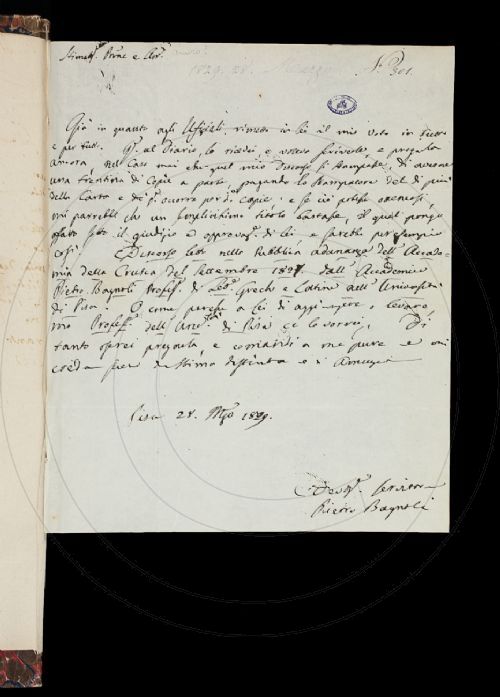 Stimatᵒ. Prõne e Amᵒ.
1829. 28. Marzo
Nº. 301.
Già in quanto agli Uffiziali, rimetto in lei il mio Voto in tutto
e per tutto. al Diario, lo ricevei e volevo scriverle, e pregarla
ancora, nel caso mai che quel mio Discorso si stampasse, di avere
una trentina di Copie a parte, pagando lo Stampatore del di più
della Carta e di occorra per copie: e se ciò potesse ottenersi,
mi parrebbe che un semplicissimo titolo bastasse, il qual pongo
sotto il giudizio e approvazᵉ. di lei e sarebbe per esempio
così. Discorso letto nella Pubblica adunanza dell' Accade-
mia della Crusca del Settembre 1827. dall' Accademico
Pietro Bagnoli Profess. di Lettᵉ. Greche e Latine nell' Università
di Pisa. O come paresse a lei di aggiungere, levare,
ma Profess. dell' Univᵗᵃ. di Pisa ce lo vorrei. Di
tanto oserei pregarla, e comandi a me pure e mi
creda pien di stima distinta e
Pisa 28. Mzo 1829.
Devᵒ. Servitore
Pietro Bagnoli